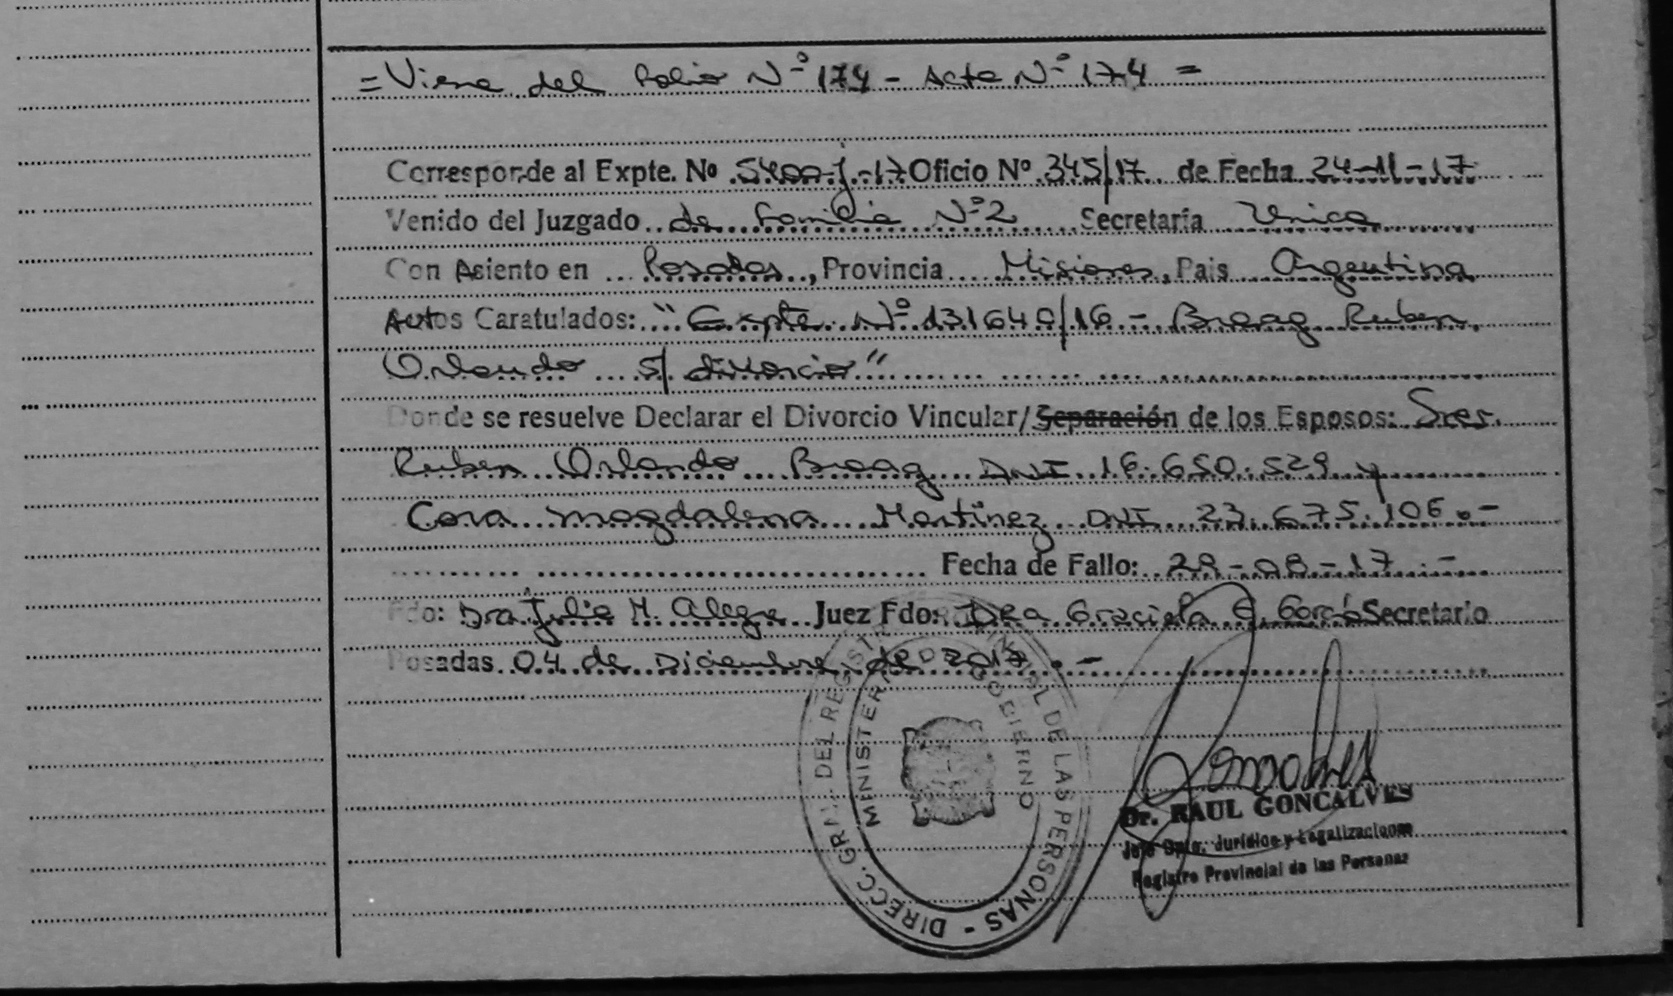 = Viene del Folio Nº 174 - Acta Nº 174 =
Corresponde al Expte. Nº 5400-J-17 Oficio Nº 345/17 de Fecha 24-11-17
Venido del Juzgado de Familia Nº 2 Secretaría Unica
Con Asiento en Posadas, Provincia Misiones, Pais Argentina
Autos Caratulados: "Expte. Nº 131640/16 - Braag Ruben
Orlando s/ divorcio"
Donde se resuelve Declarar el Divorcio Vincular/Separación de los Esposos: Sres.
Ruben Orlando Braag DNI 16.650.529 y
Cora Magdalena Martinez DNI 23.675.106.-
Fecha de Fallo: 29-08-17.-
Fdo: Dra Julia M. Alegre Juez Fdo: Dra Graciela E. Secretario
Posadas 04 de Diciembre de 2017.-
DIRECC. GRAL DEL REGIST DE LAS PERSONAS -
MINISTER GOBIERNO
Dr. RAUL GONCALVES
Jefe Dpto. Jurídico y Legalizaciones
Registro Provincial de las Personas